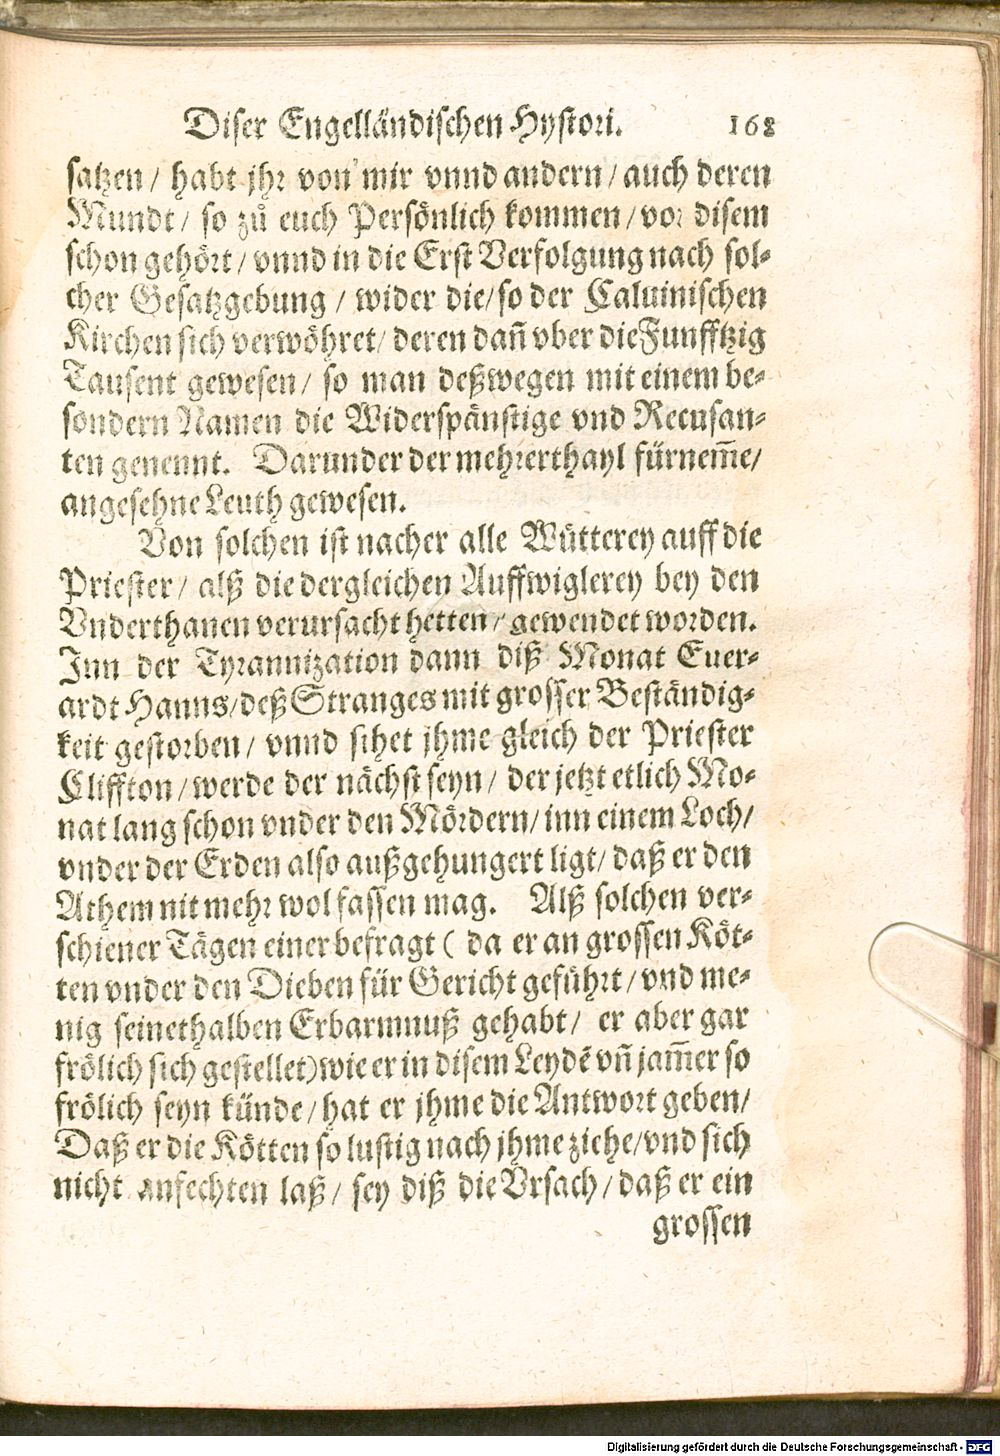 Diser Engelländischen Hystori. 168
satzen / habt jhr von mir vnnd andern / auch deren
Mundt / so zů euch Persönlich kommen / vor disem
schon gehört / vnnd in die Erst Verfolgung nach sol-
cher Gesatzgebung / wider die / so der Caluinischen
Kirchen sich verwöhret / deren dañ vber die Funfftzig
Tausent gewesen / so man deßwegen mit einem be-
sondern Namen die Widerspänstige vnd Recusan-
ten genennt. Darunder der mehrerthayl fürnem̃e /
angesehne Leuth gewesen.
Von solchen ist nacher alle Wütterey auff die
Priester / alß die dergleichen Auffwiglerey bey den
Vnderthanen verursacht hetten / gewendet worden.
Inn der Tyrannization dann diß Monat Euer-
ardt Hanns / deß Stranges mit grosser Beständig-
keit gestorben / vnnd sihet jhme gleich der Priester
Cliffton / werde der nächst seyn / der jetzt etlich Mo-
nat lang schon vnder den Mördern / inn einem Loch /
vnder der Erden also außgehungert ligt / daß er den
Athem nit mehr wol fassen mag. Alß solchen ver-
schiener Tägen einer befragt ( da er an grossen Köt-
ten vnder den Dieben für Gericht geführt / vnd me-
nig seinethalben Erbarmnuß gehabt / er aber gar
frölich sich gestellet) wie er in disem Leydẽ vñ jam̃er so
frölich seyn künde / hat er jhme die Antwort geben /
Daß er die Kötten so lustig nach jhme ziehe / vnd sich
nicht anfechten laß / sey diß die Vrsach / daß er ein
grossen
Digitalisierung gefördert durch die Deutsche Forschungsgemeinschaft - DFG